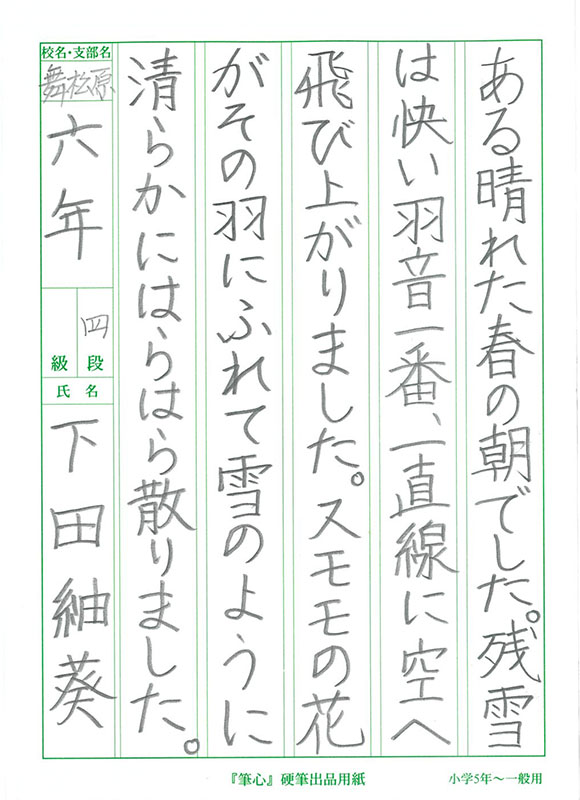 ある晴れた春の朝でした。残雪
は快い羽音一番、一直線に空へ
飛び上がりました。スモモの花
がその羽にふれて雪のように
清らかにはらはら散りました。
校名・支部名
舞松原
六年
四段
級
氏名
下田紬葵
『筆心』硬筆出品用紙
小学5年〜一般用